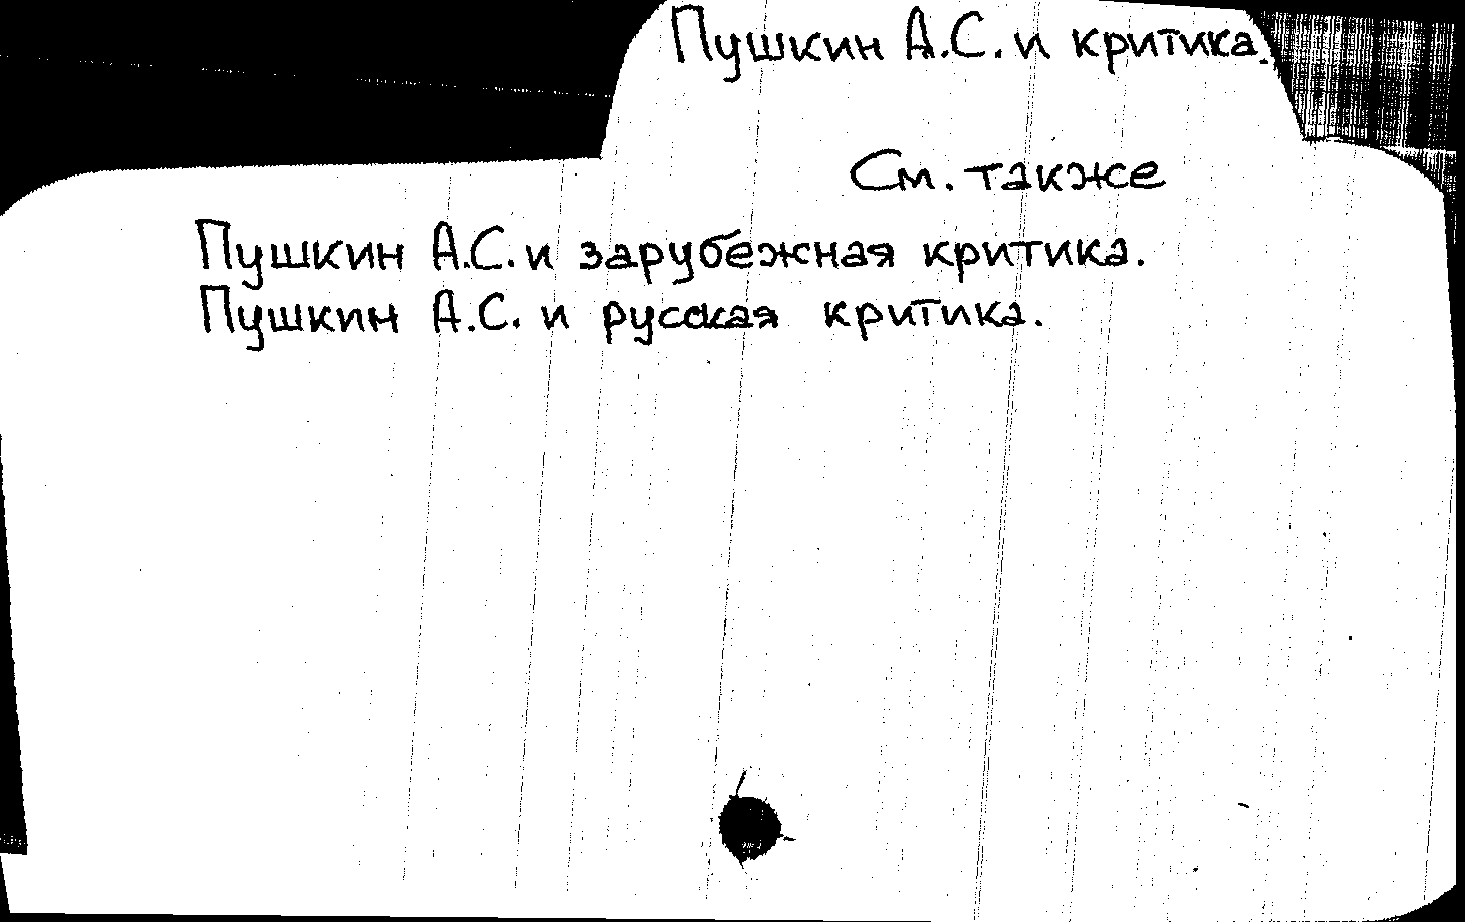 Пушкин А.С. и критика.
См. также
Пушкин А.С. и зарубежная критика.
Пушкин А.С. и русская критика.